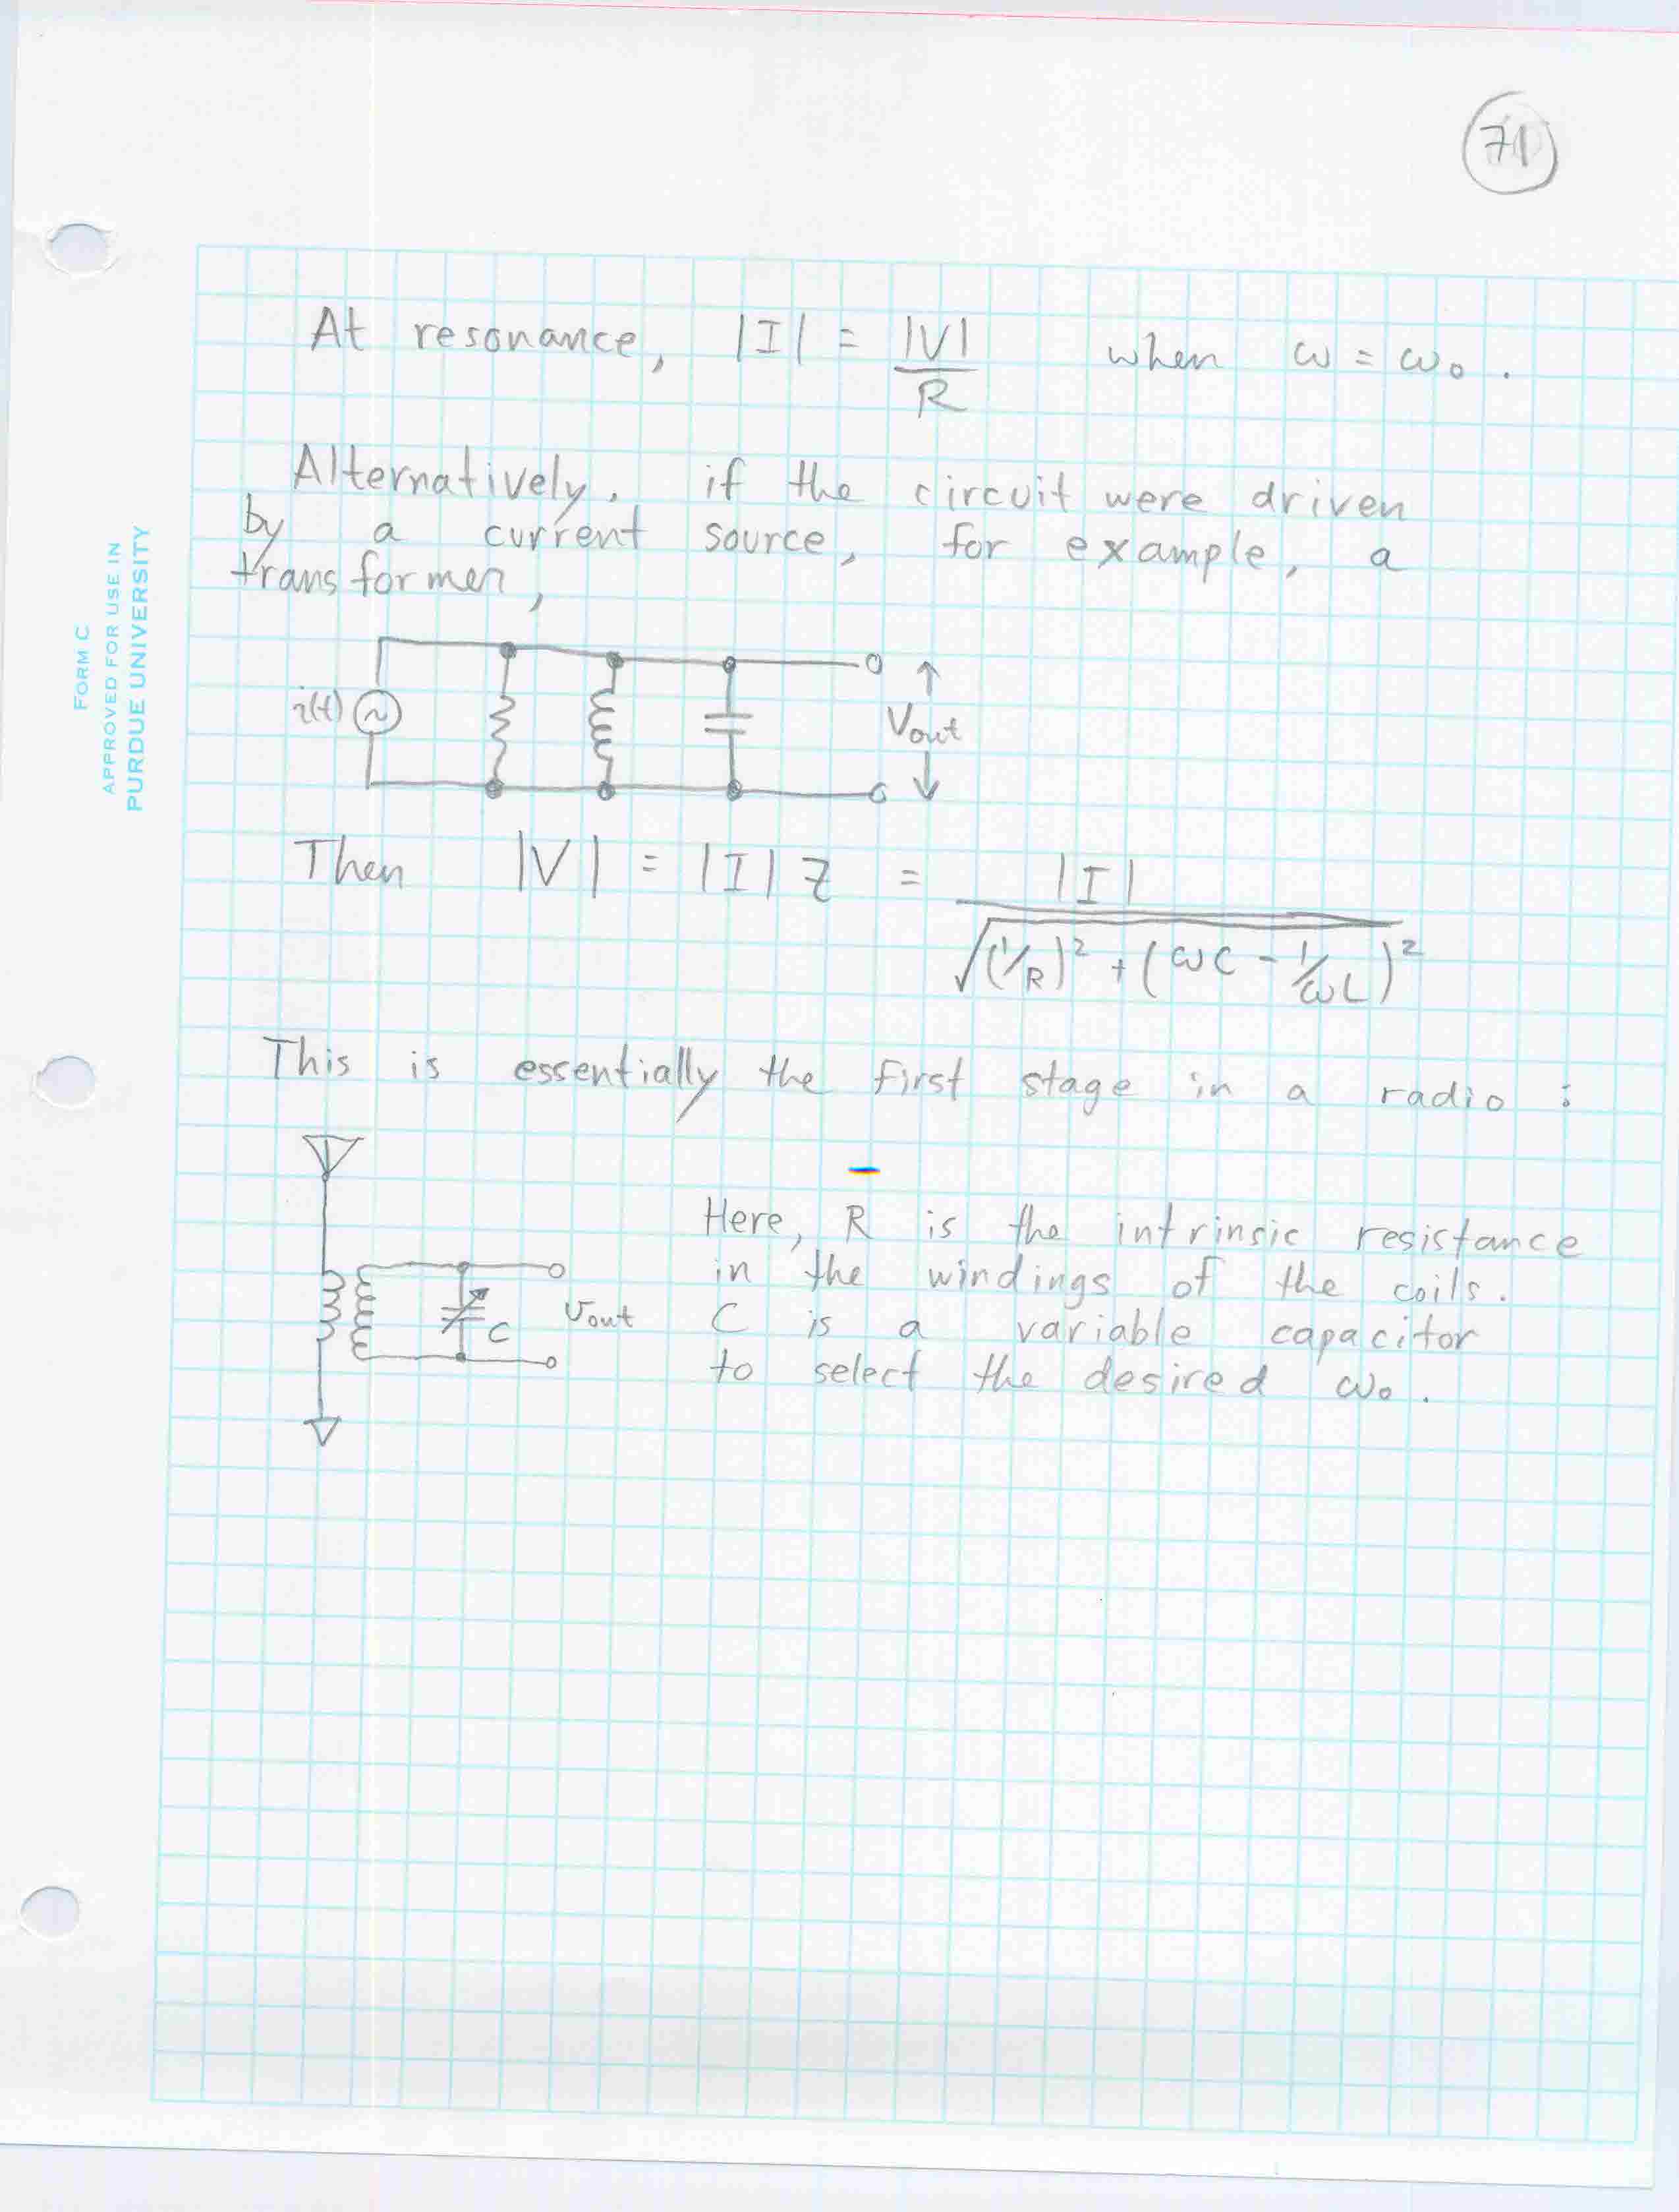 71
At resonance, |I| = |V|/R when ω = ω₀.
Alternatively, if the circuit were driven
by a current source, for example, a
transformer,
i(t)
Vout
Then |V| = |I| Z = |I| / √((1/R)² + (ωC - 1/ωL)²)
This is essentially the first stage in a radio:
Here, R is the intrinsic resistance
in the windings of the coils.
C is a variable capacitor
to select the desired ω₀.
C
Vout
FORM C
APPROVED FOR USE IN
PURDUE UNIVERSITY